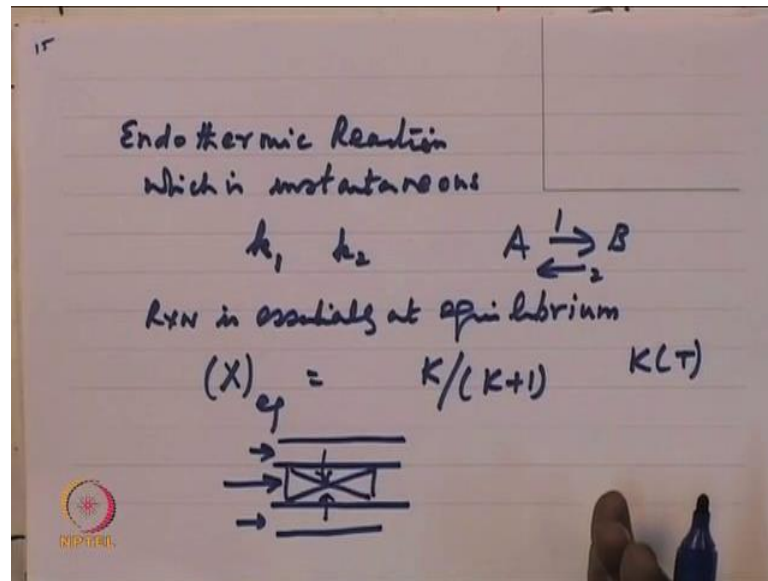 15
Endothermic Reaction
which is instantaneous
k₁ k₂ A ⇄ B
1
2
RXN is essentially at equilibrium
(X)eq = K/(K+1) K(T)
NPTEL